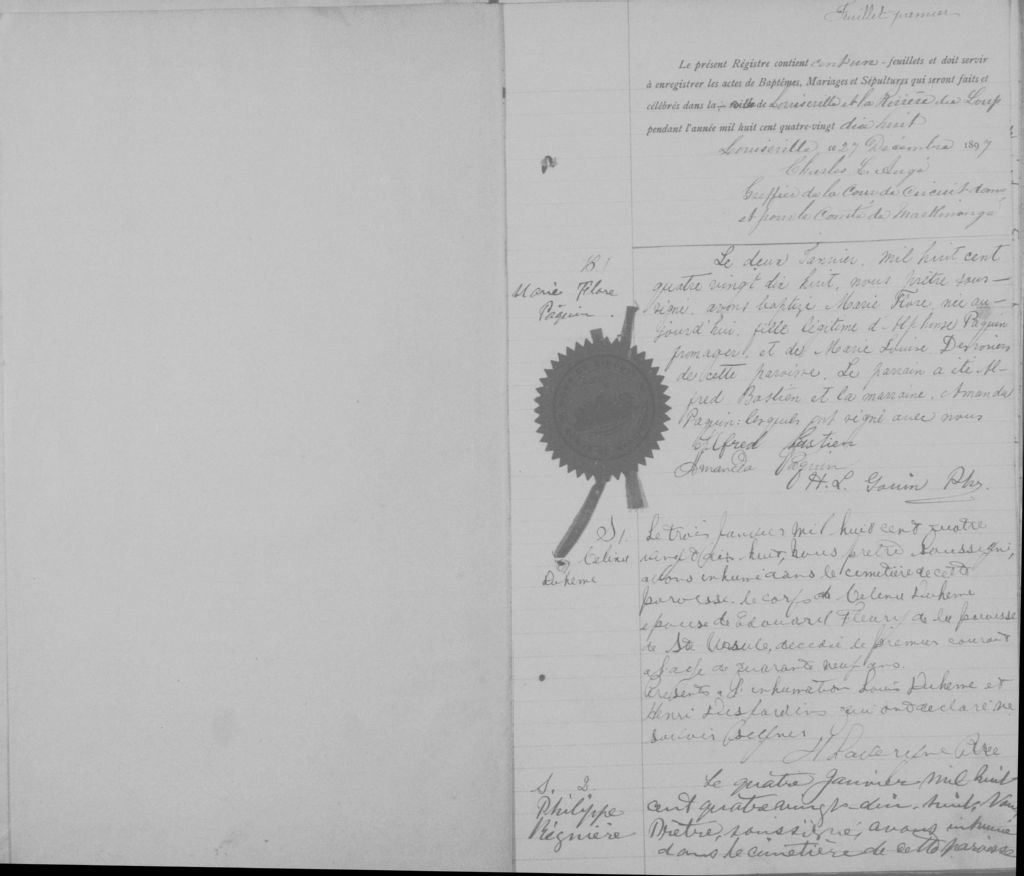 Feuillet premier
Le présent Régistre contient cent un - feuillets et doit servir
à enregistrer les actes de Baptêmes, Mariages et Sépultures qui seront faits et
célébrés dans la - ville de Louiseville et la Rivière du Loup
pendant l'année mil huit cent quatre-vingt dix huit
Louiseville, 27 Décembre 1897
Charles L. Augé
Greffier de la Cour de Circuit dans
et pour le Comté de Maskinongé
B. 1
Marie Flore
Paquin.
Le deux Janvier, mil huit cent
quatre vingt dix huit, nous prêtre sous-
signé, avons baptizé Marie Flore, née au-
jourd'hui, fille légitime d'Alphonse Paquin
fromager, et de Marie Louise Desrosiers
de cette paroisse. Le parrain a été Al-
fred Bastien et la marraine, Amanda
Paquin: lesquels ont signé avec nous
Alfred Bastien
Amanda Paquin
H. L. Gouin Ptre.
S 1.
Celina
Duheme
Le trois Janvier mil huit cent quatre
vingt dix huit, nous prêtre soussigné,
avons inhumé dans le cimetière de cette
paroisse, le corps de Celina Duheme
epouse de Edouard Fleury de la paroisse
de Ste Ursule, decedée le premier courant
a l'age de quarante neuf ans.
Presents a l'inhumation Louis Duheme et
Henri Desjardins qui ont declaré ne
savoir signer
Ptre
S. 2.
Philippe
Régnière
Le quatre Janvier mil huit
cent quatre vingt-dix-huit, Nous
Prêtre, soussigné, avons inhumé
dans le cimetière de cette paroisse